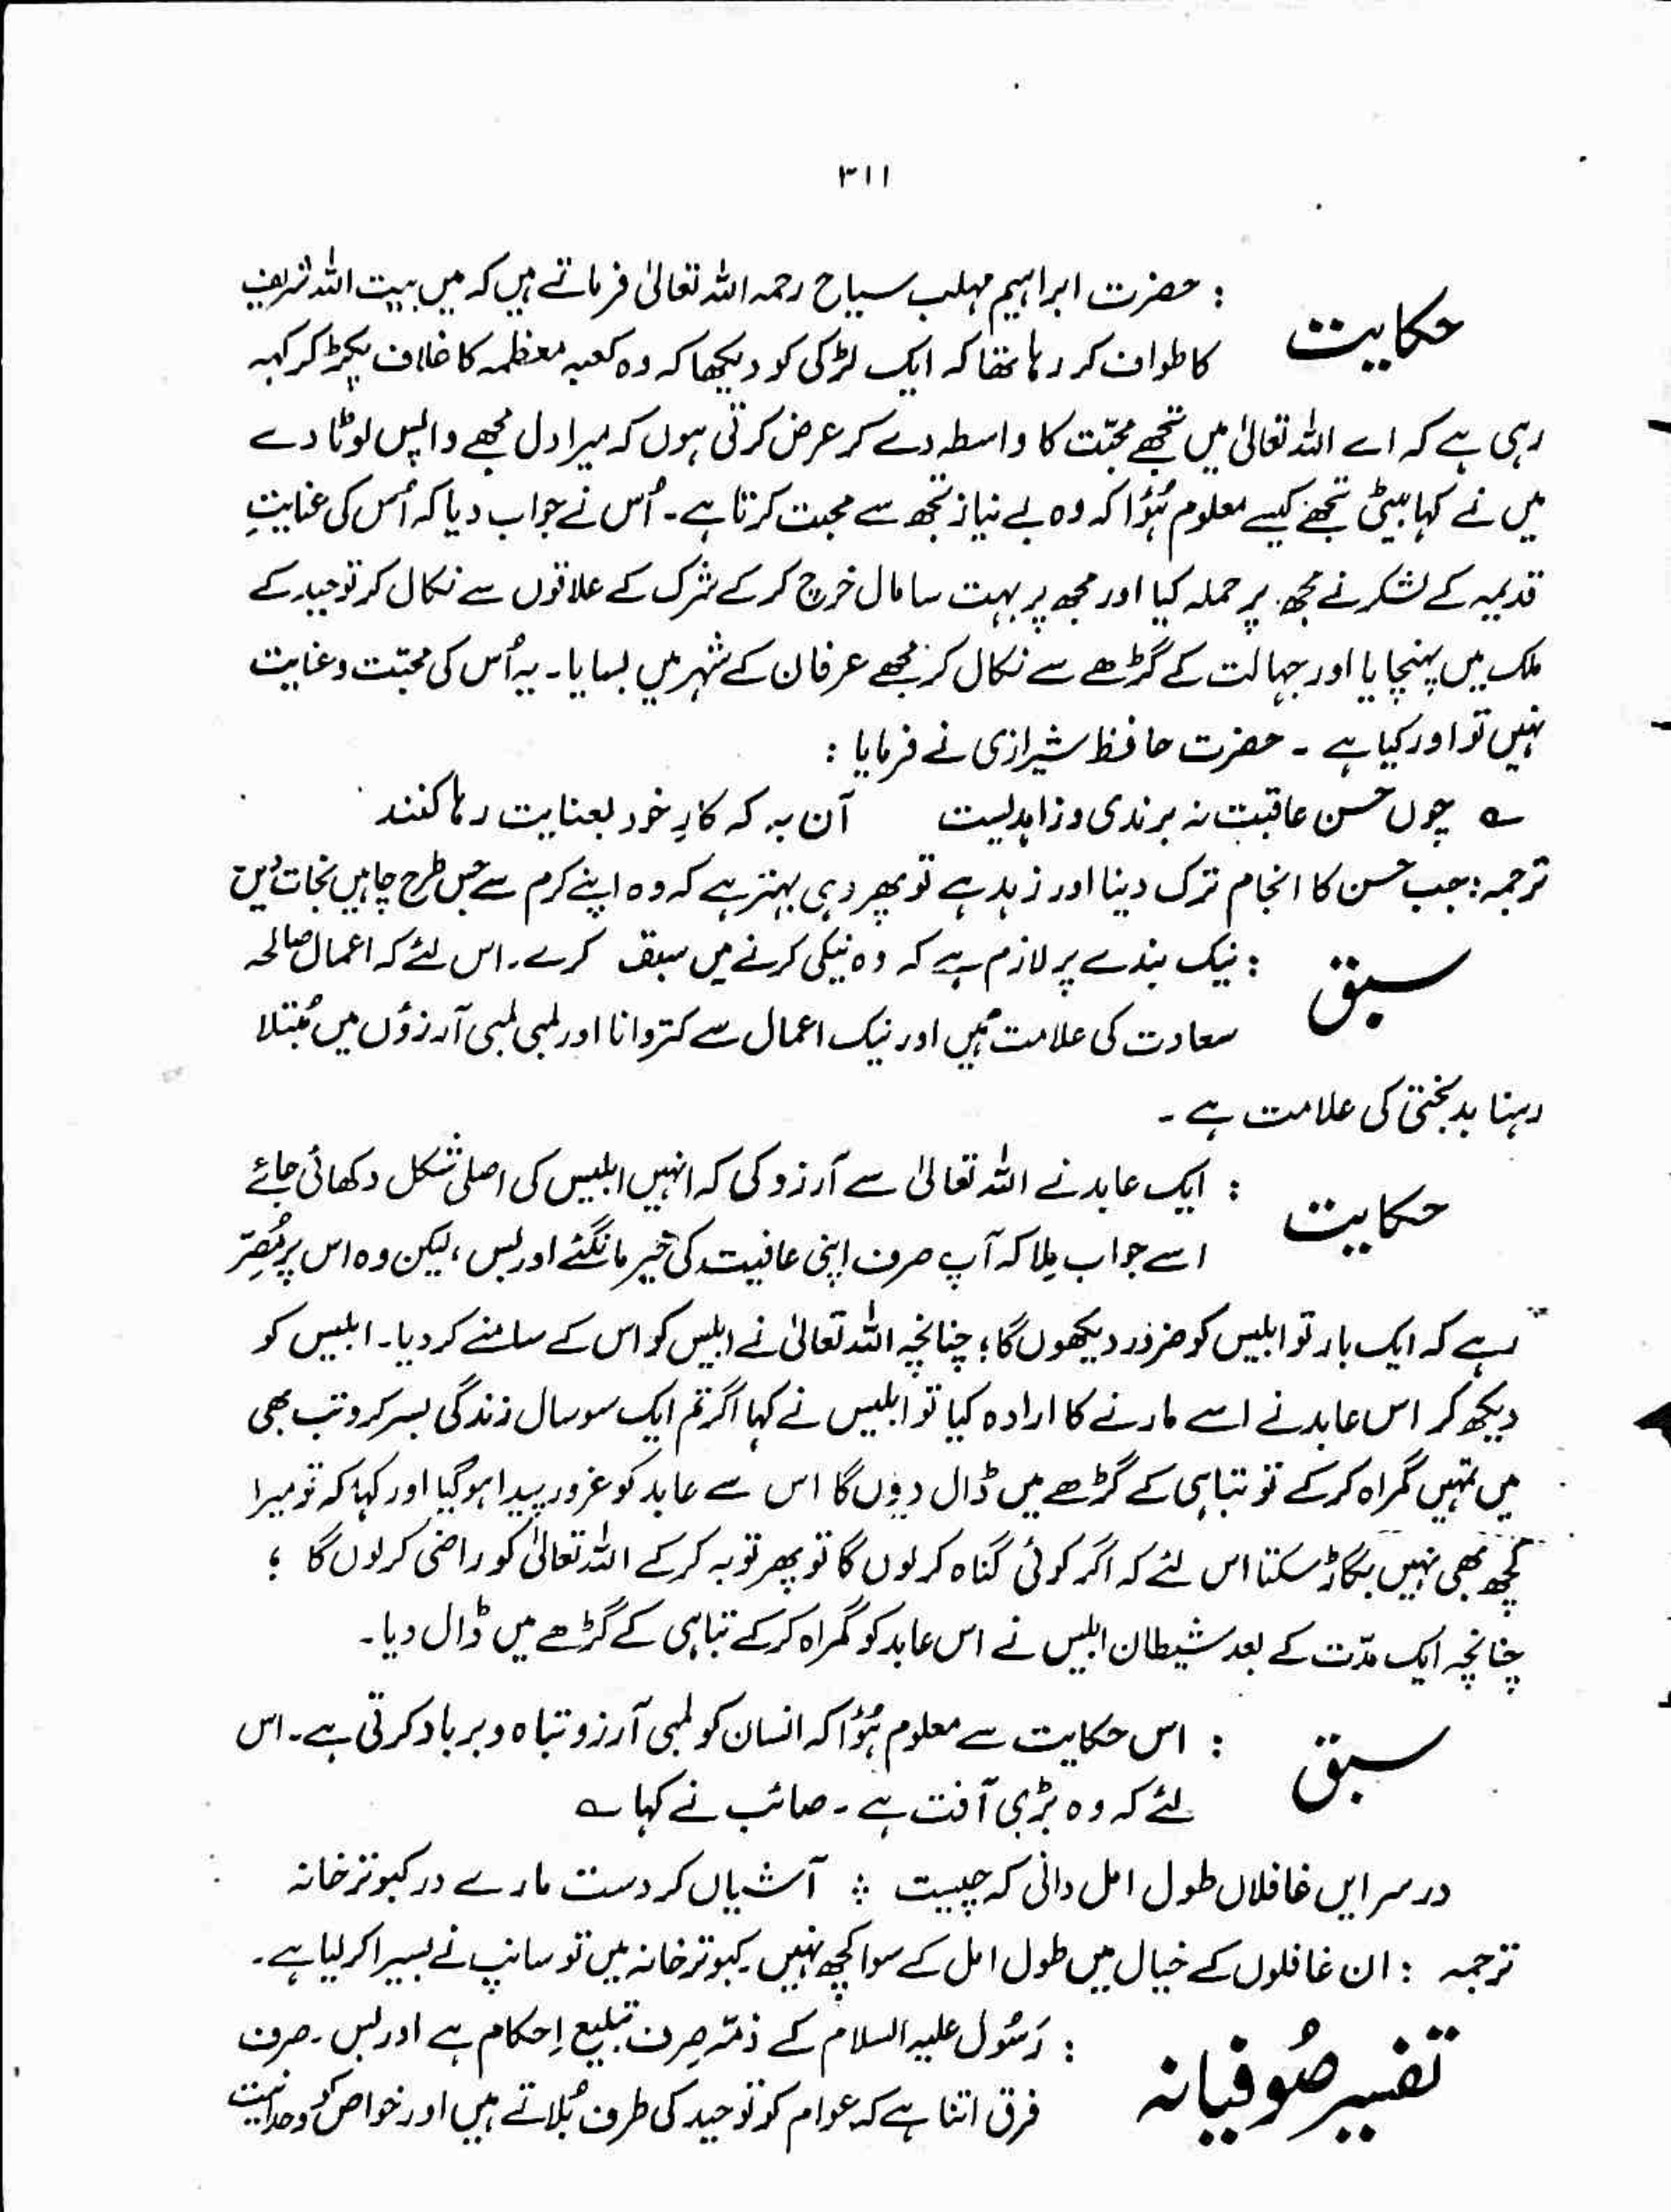 ۳۱۱
حکایت : حضرت ابراہیم مہلب سیاح رحمہ اللہ تعالیٰ فرماتے ہیں کہ میں بیت اللہ شریف
کا طواف کر رہا تھا کہ ایک لڑکی کو دیکھا کہ وہ کعبہ معظمہ کا غلاف پکڑ کر کہہ
رہی ہے کہ اے اللہ تعالیٰ میں تجھے محبّت کا واسطہ دے کر عرض کرتی ہوں کہ میرا دل مجھے واپس لوٹا دے
میں نے کہا بیٹی تجھے کیسے معلوم ہُؤا کہ وہ بے نیاز تجھ سے محبت کرتا ہے۔ اُس نے جواب دیا کہ اُس کی عنایتِ
قدیمہ کے لشکر نے مجھ پر حملہ کیا اور مجھ پر بہت سا مال خرچ کر کے شرک کے علاقوں سے نکال کر توحید کے
ملک میں پہنچایا اور جہالت کے گڑھے سے نکال کر مجھے عرفان کے شہر میں بسایا۔ یہ اُس کی محبّت و عنایت
نہیں تو اور کیا ہے ۔ حضرت حافظ شیرازی نے فرمایا :
؎ چوں حُسن عاقبت نہ برندی و زاہدیست آن بہ کہ کارِ خود بعنایت رہا کنند
ترجمہ: جب حُسن کا انجام ترک دینا اور زہد ہے تو پھر وہی بہتر ہے کہ وہ اپنے کرم سے جس طرح چاہیں نجات دیں
سبق : نیک بندے پر لازم ہے کہ وہ نیکی کرنے میں سبقت کرے۔ اس لئے کہ اعمال صالحہ
سعادت کی علامت ہیں اور نیک اعمال سے کتروانا اور لمبی لمبی آرزؤں میں مُبتلا
رہنا بدبختی کی علامت ہے ۔
حکایت : ایک عابد نے اللہ تعالیٰ سے آرزو کی کہ انہیں ابلیس کی اصلی شکل دکھائی جائے
اسے جواب مِلا کہ آپ صرف اپنی عافیت کی خیر مانگئے اور بس ، لیکن وہ اس پر مُصِرّ
رہے کہ ایک بار تو ابلیس کو ضرور دیکھوں گا؛ چنانچہ اللہ تعالیٰ نے ابلیس کو اس کے سامنے کر دیا۔ ابلیس کو
دیکھ کر اس عابد نے اسے مارنے کا ارادہ کیا تو ابلیس نے کہا اگر تم ایک سو سال زندگی بسر کرو تب بھی
میں تمہیں گمراہ کر کے تو تباہی کے گڑھے میں ڈال دوں گا اس سے عابد کو غرور پیدا ہو گیا اور کہا کہ تو میرا
کچھ بھی نہیں بگاڑ سکتا اس لئے کہ اگر کوئی گناہ کر لوں گا تو پھر توبہ کر کے اللہ تعالیٰ کو راضی کر لوں گا ؛
چنانچہ ایک مدّت کے بعد شیطان ابلیس نے اس عابد کو گمراہ کر کے تباہی کے گڑھے میں ڈال دیا۔
سبق : اس حکایت سے معلوم ہُؤا کہ انسان کو لمبی آرزو تباہ و برباد کرتی ہے۔ اس
لئے کہ وہ بڑی آفت ہے ۔ صائب نے کہا ؎
در سرایں غافلاں طول امل دانی کہ چیست ؞ آشیاں کردست مارے در کبوتر خانہ
ترجمہ : ان غافلوں کے خیال میں طول امل کے سوا کچھ نہیں۔ کبوتر خانہ میں تو سانپ نے بسیرا کر لیا ہے۔
تفسیر صُوفیانہ : رَسُول علیہ السلام کے ذمّہ صِرف تبلیع اِحکام ہے اور بس ۔ صرف
فرق اتنا ہے کہ عوام کو توحید کی طرف بُلاتے ہیں اور خواص کو وحدانیت